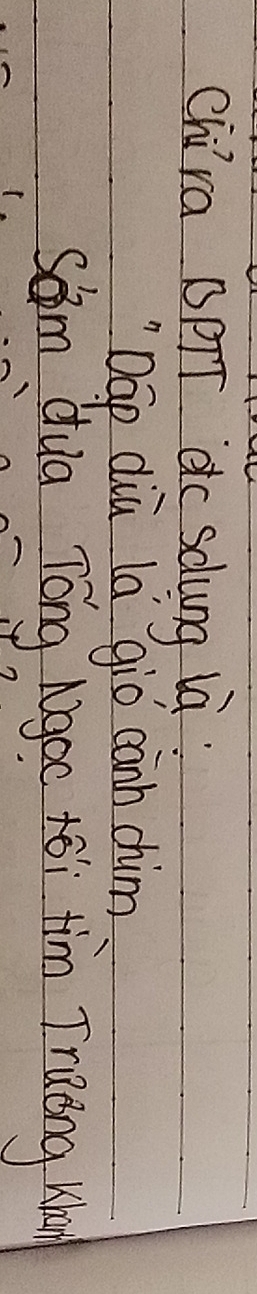 Chỉ ra BPTT đc sdụng là:
"Dập dìu lá gió cành chim
Sớm đưa Tống Ngọc tối tìm Trường Khanh